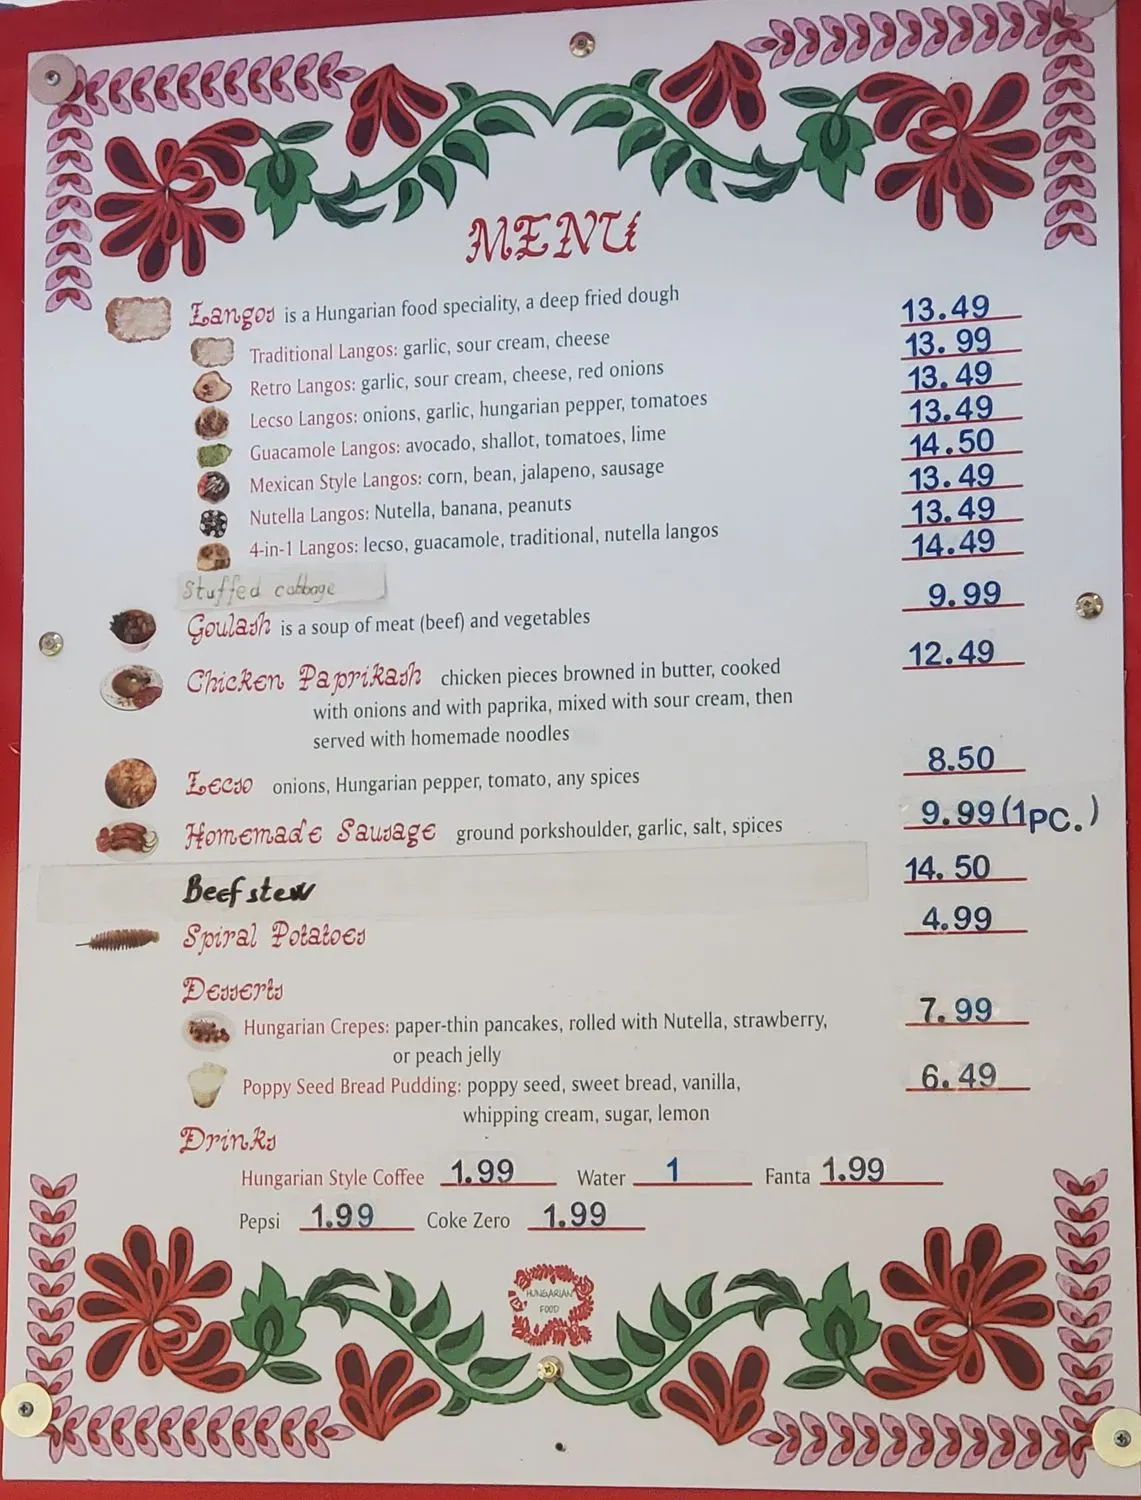 MENU
Langos is a Hungarian food speciality, a deep fried dough 13.49
Traditional Langos: garlic, sour cream, cheese 13.99
Retro Langos: garlic, sour cream, cheese, red onions 13.49
Lecso Langos: onions, garlic, hungarian pepper, tomatoes 13.49
Guacamole Langos: avocado, shallot, tomatoes, lime 14.50
Mexican Style Langos: corn, bean, jalapeno, sausage 13.49
Nutella Langos: Nutella, banana, peanuts 13.49
4-in-1 Langos: lecso, guacamole, traditional, nutella langos 14.49
Stuffed cabbage
Goulash is a soup of meat (beef) and vegetables 9.99
Chicken Paprikash chicken pieces browned in butter, cooked 12.49
with onions and with paprika, mixed with sour cream, then
served with homemade noodles
Lecso onions, Hungarian pepper, tomato, any spices 8.50
Homemade Sausage ground porkshoulder, garlic, salt, spices 9.99 (1PC.)
Beef stew 14.50
Spiral Potatoes 4.99
Desserts
Hungarian Crepes: paper-thin pancakes, rolled with Nutella, strawberry, 7.99
or peach jelly
Poppy Seed Bread Pudding: poppy seed, sweet bread, vanilla, 6.49
whipping cream, sugar, lemon
Drinks
Hungarian Style Coffee 1.99 Water 1 Fanta 1.99
Pepsi 1.99 Coke Zero 1.99
HUNGARIAN
FOOD